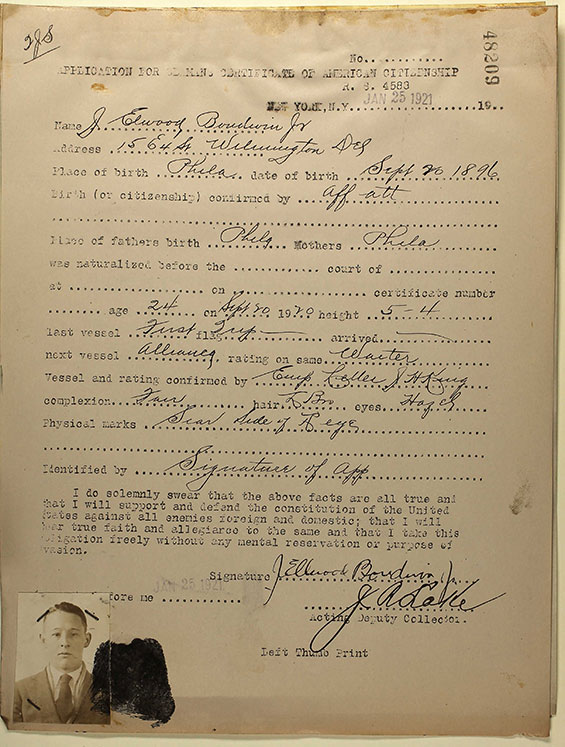 JJS
48209
No...........
APPLICATION FOR SEAMANS CERTIFICATE OF AMERICAN CITIZENSHIP
R. S. 4583
NEW YORK, N.Y. JAN 25 1921 19..
Name J. Elwood Boudwin Jr
Address 15 64 St Wilmington Del
Place of birth Phila. date of birth Sept 20 1896
Birth (or citizenship) confirmed by aff att
Place of fathers birth Phila Mothers Phila
was naturalized before the ............ court of ............
at ............ on ............ certificate number
........ age 24 on Sept 20 1920 height 5-4
last vessel First flag Trip arrived
next vessel Alliance rating on same Waiter
Vessel and rating confirmed by Emp Letter J H King
complexion Fair hair L Bro eyes Hazel
Physical marks Scar side of L eye
Identified by Signature of App
I do solemnly swear that the above facts are all true and
that I will support and defend the constitution of the United
States against all enemies foreign and domestic; that I will
bear true faith and allegiance to the same and that I take this
obligation freely without any mental reservation or purpose of
vasion.
Signature J. Ellwood Boudwin Jr.
JAN 25 1921
fore me ............ J. A. Lake
Acting Deputy Collector.
Left Thumb Print